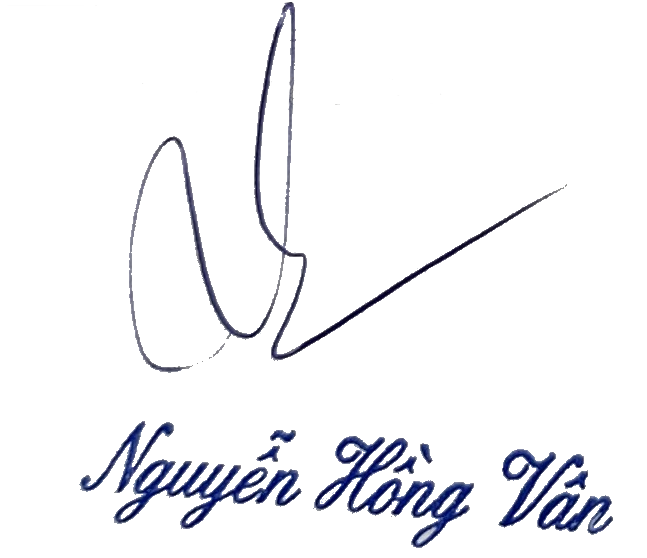 Nguyễn Hồng Vân